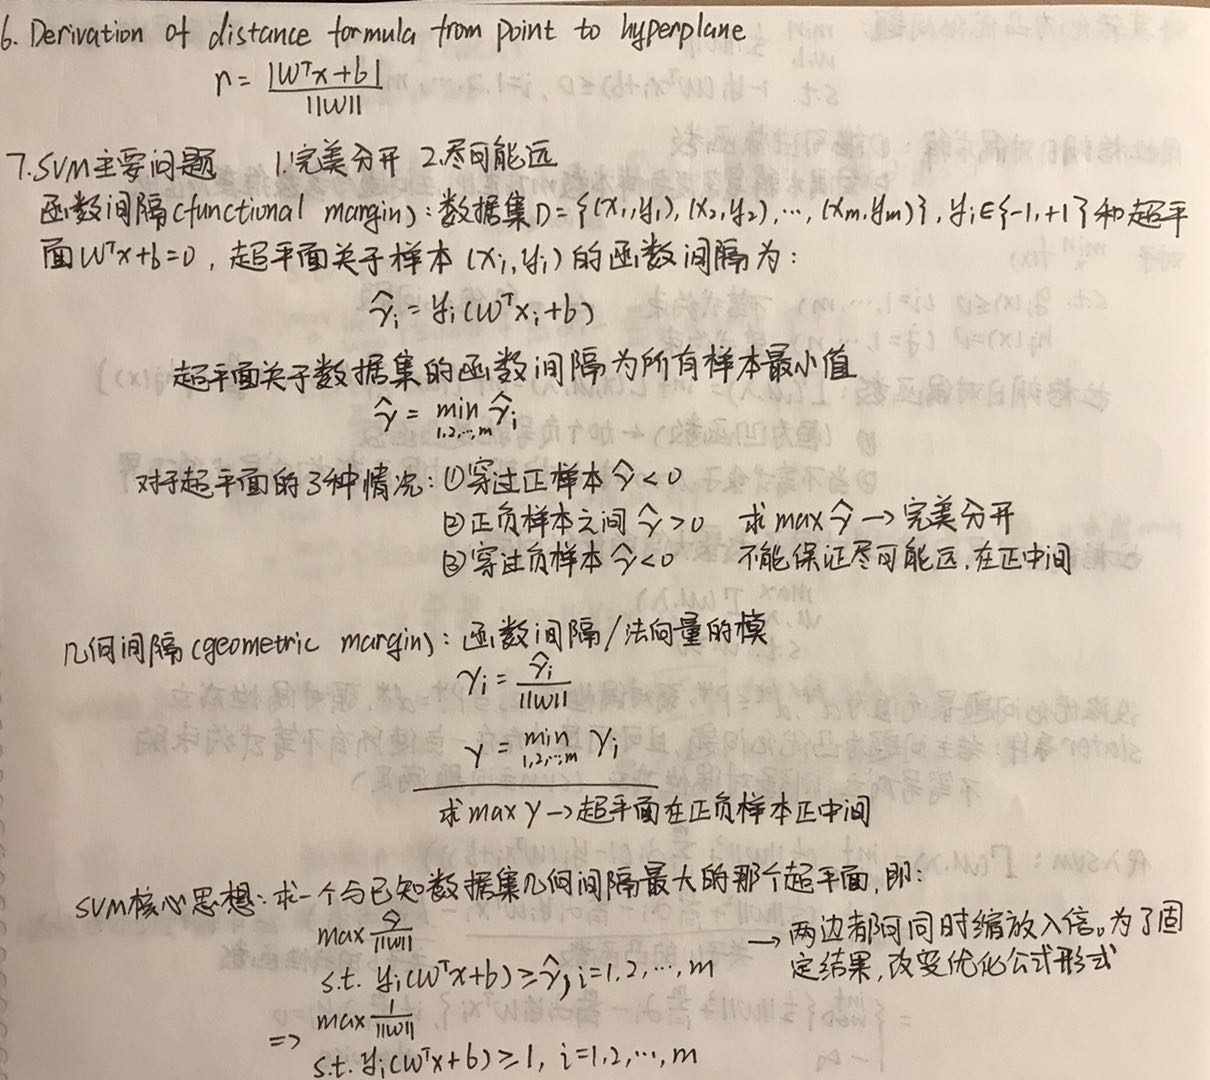 6. Derivation of distance formula from point to hyperplane
r = |WᵀX+b| / ||W||
7. SVM主要问题 1.完美分开 2.尽可能远
函数间隔(functional margin): 数据集D={(X₁,y₁),(X₂,y₂),…,(Xm,ym)}, yᵢ∈{-1,+1}和超平
面WᵀX+b=0, 超平面关于样本(Xᵢ,yᵢ)的函数间隔为:
γ̂ᵢ = yᵢ(WᵀXᵢ+b)
超平面关于数据集的函数间隔为所有样本最小值
γ̂ = min 1,2,…,m γ̂ᵢ
对于超平面的3种情况: ①穿过正样本 γ̂<0
②正负样本之间 γ̂>0 求max γ̂ → 完美分开
③穿过负样本 γ̂<0 不能保证尽可能远,在正中间
几何间隔(geometric margin): 函数间隔/法向量的模
γᵢ = γ̂ᵢ / ||W||
γ = min 1,2,…,m γᵢ
求max γ → 超平面在正负样本正中间
SVM核心思想: 求一个与已知数据集几何间隔最大的那个超平面,即:
max γ̂ / ||W||
→ 两边都可同时缩放入倍。为了固
s.t. yᵢ(WᵀX+b) ≥ γ̂, i=1,2,…,m
定结果,改变优化公式形式
=> max 1 / ||W||
s.t. yᵢ(WᵀX+b) ≥ 1, i=1,2,…,m